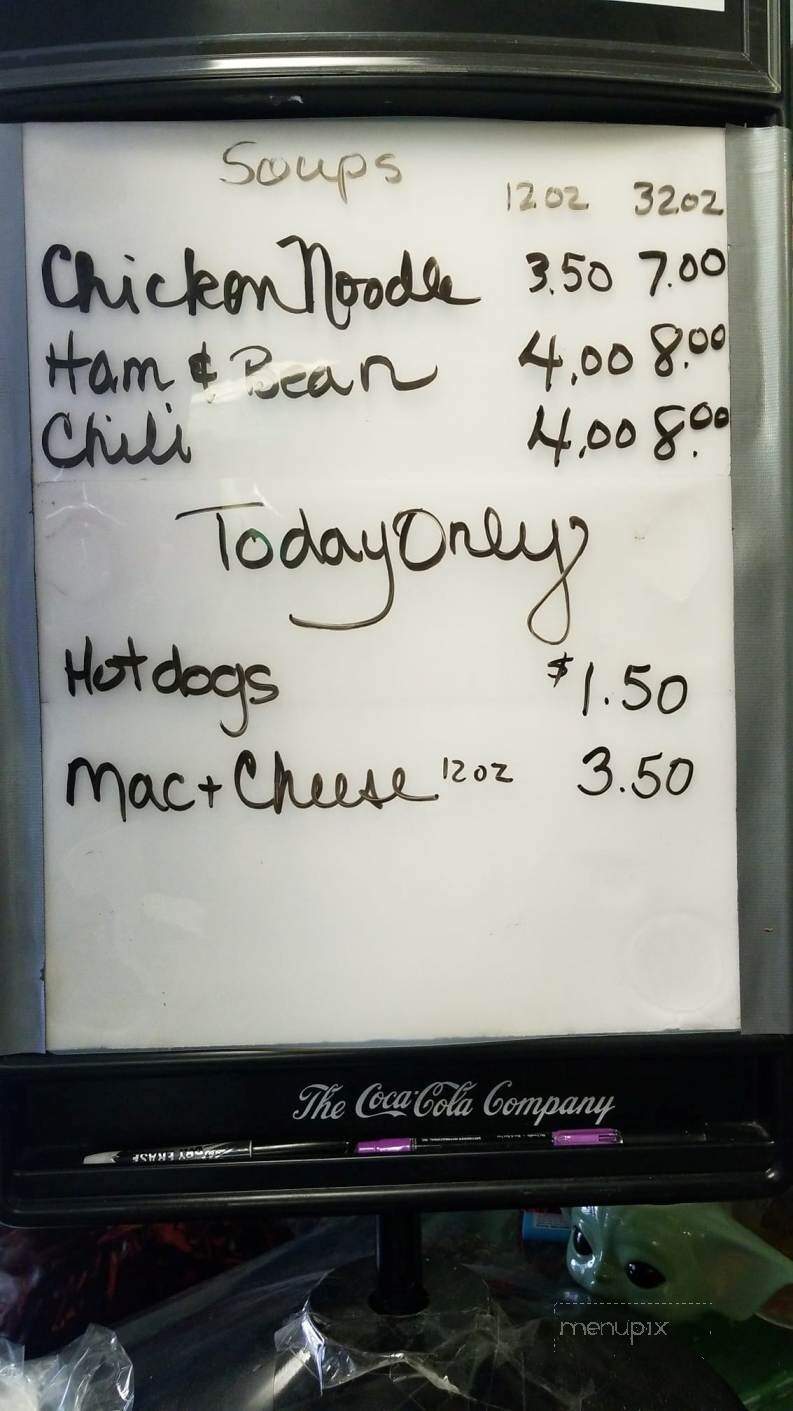 Soups
12oz 32oz
Chicken Noodle 3.50 7.00
Ham & Bean 4.00 8.00
Chili 4.00 8.00
Today Only
Hotdogs $1.50
Mac + Cheese 12oz 3.50
The Coca-Cola Company
DRY ERASE
menupix